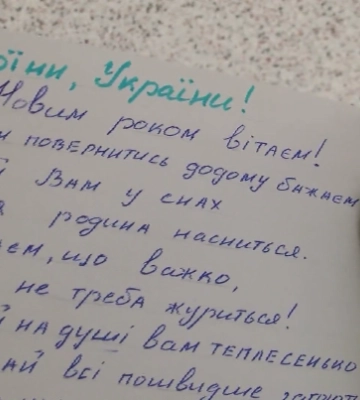 України!
Новим роком вітаєм!
повернитись додому бажаєм
Вам у снах
родина насниться.
що важко,
не треба журиться!
на душі вам теплесенько
всі пошвидше